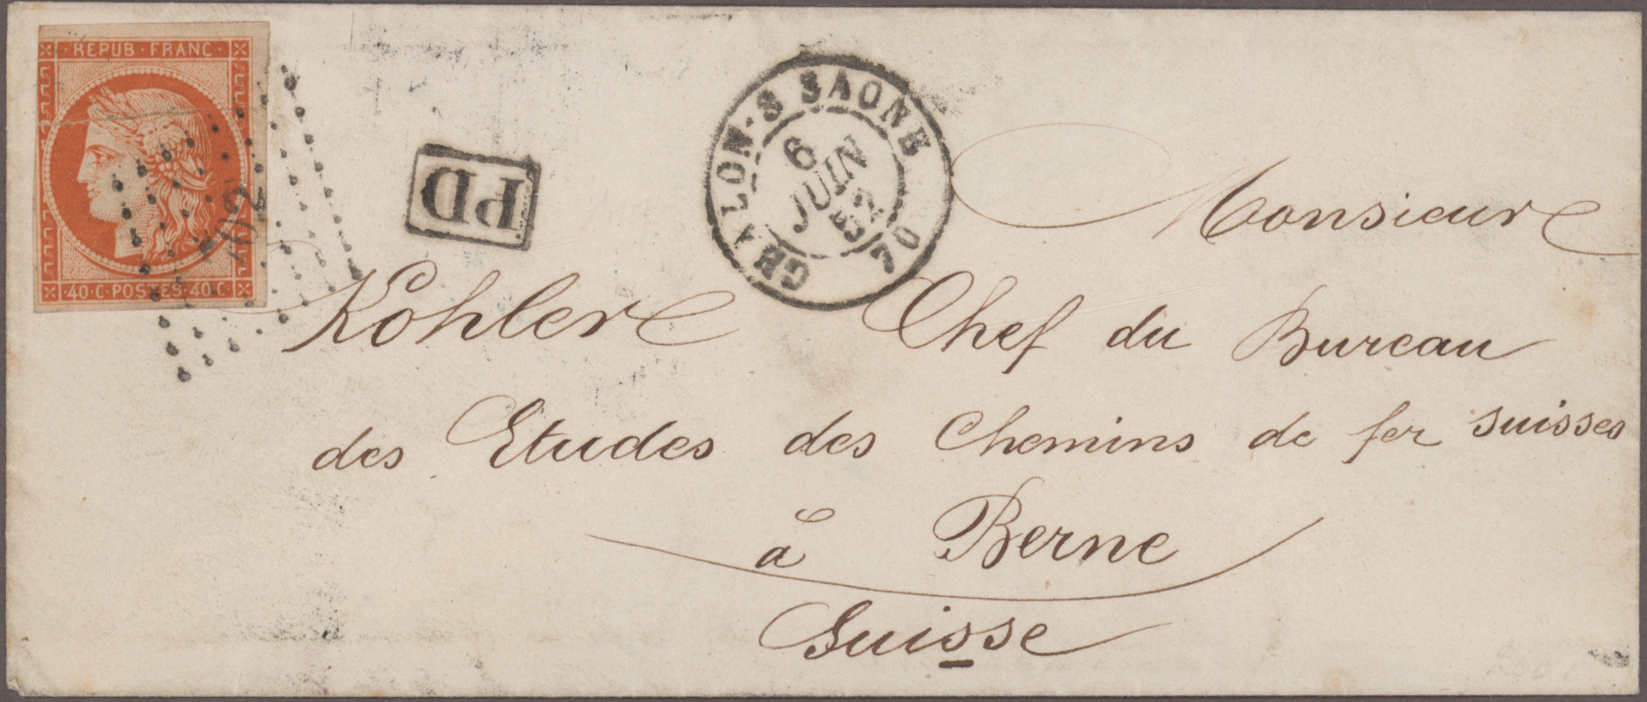 REPUB·FRANC·
40·C·POSTES·40·C
702
PD
CHALON-S-SAONE
6
JUIN
52
70
Monsieur
Kohler Chef du Bureau
des Etudes des Chemins de fer suisses
à Berne
Suisse